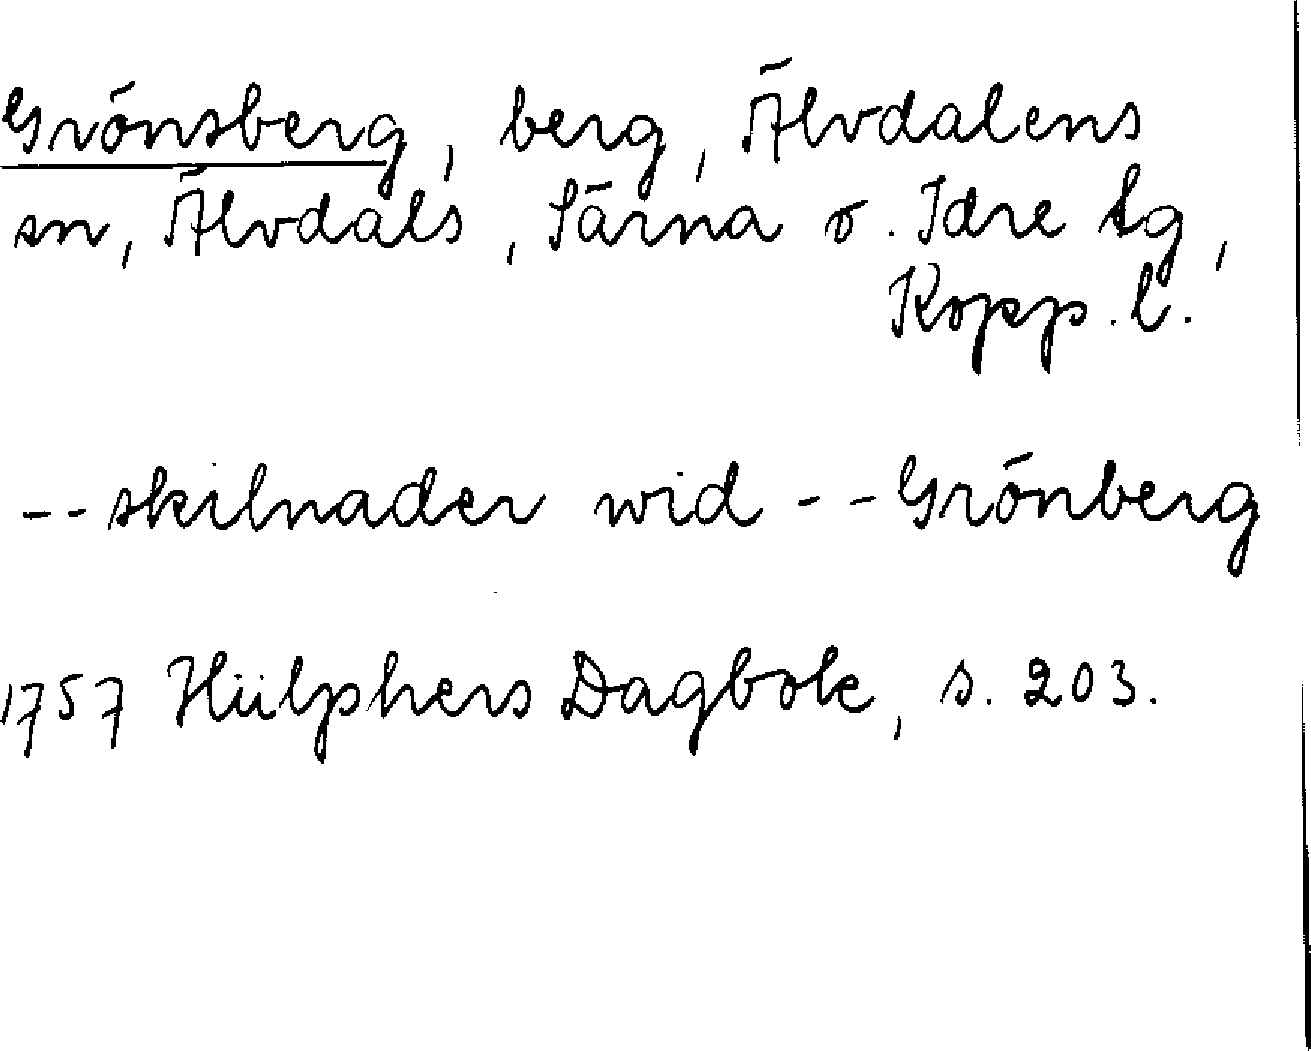 Grönsberg, berg, Älvdalens
sn, Älvdals, Särna o. Idre tg,
Kopp. l.
-- skilnader wid -- Grönberg
1757 Hülphers Dagbok, s. 203.